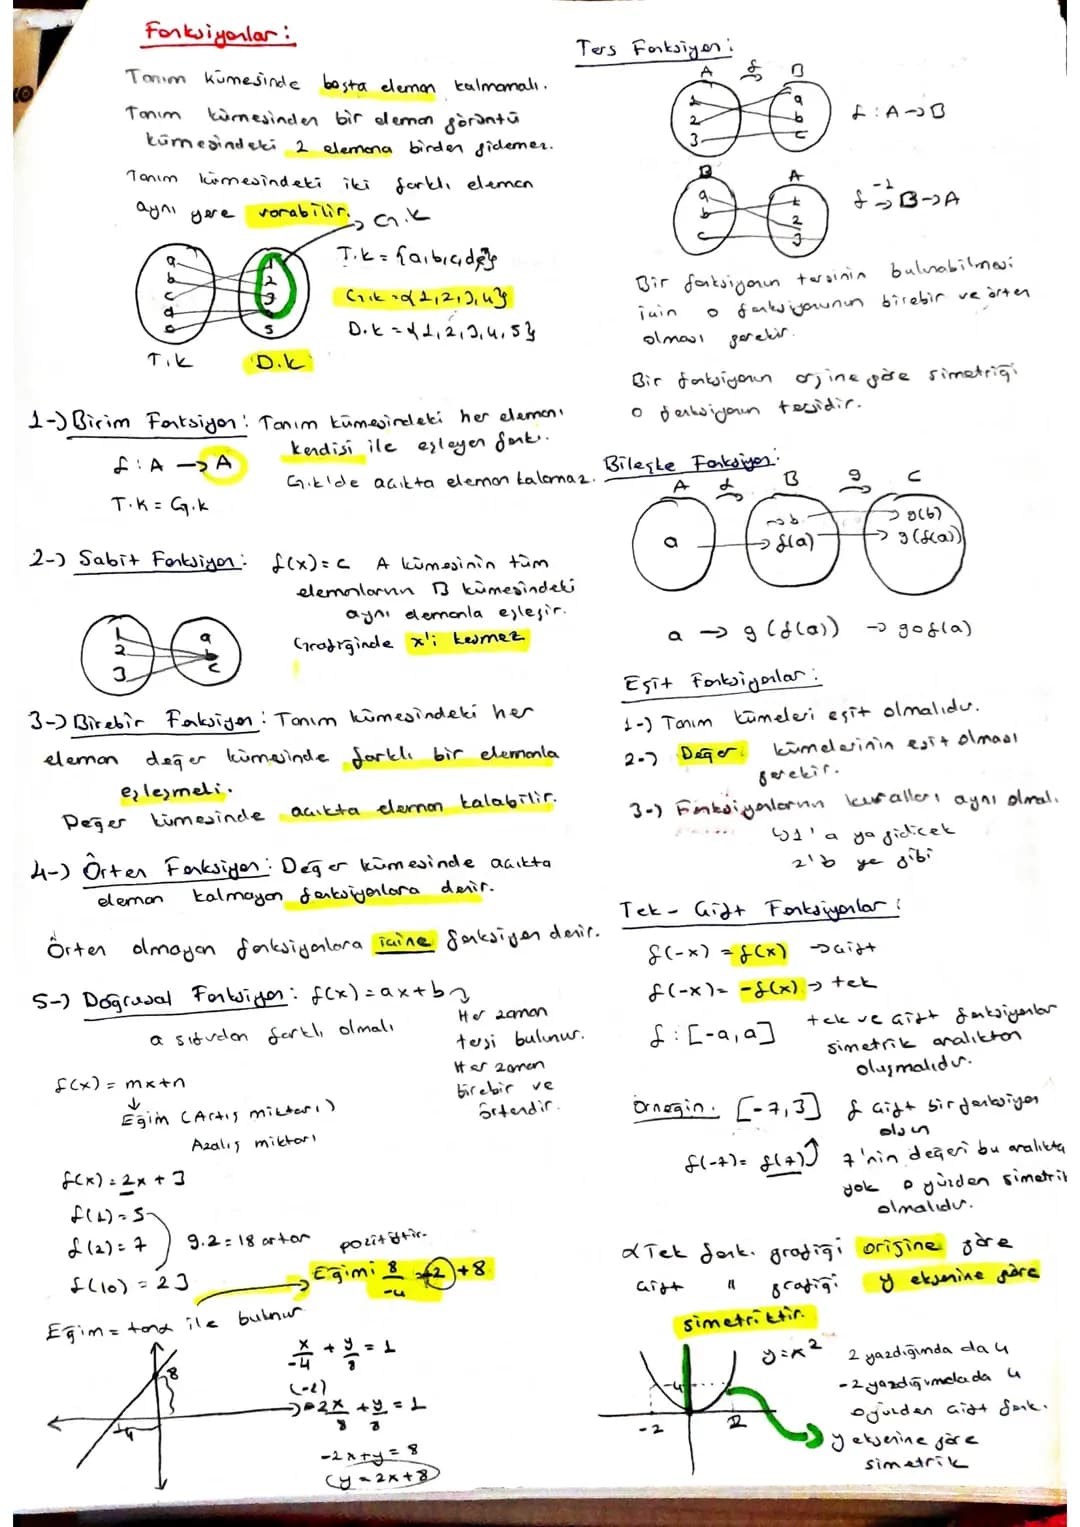 Fonksiyonlar:
Tanım kümesinde boşta eleman kalmamalı.
Tanım kümesinden bir eleman görüntü
kümesindeki 2 elemana birden gidemez.
Tanım kümesindeki iki farklı eleman
aynı yere varabilir.
G.k
a
b
c
d
e
1
2
3
4
5
T.k = {a,b,c,d,e}
G.k = {1,2,3,4}
D.k = {1,2,3,4,5}
T.k
D.k
1-) Birim Fonksiyon: Tanım kümesindeki her elemanı
kendisi ile eşleyen fonk.
f: A → A
G.k'de açıkta eleman kalamaz.
T.K = G.k
2-) Sabit Fonksiyon: f(x)=c A kümesinin tüm
elemanlarının B kümesindeki
aynı elemanla eşleşir.
Grafiğinde x'i kesmez
1
2
3
a
b
c
3-) Birebir Fonksiyon: Tanım kümesindeki her
eleman değer kümesinde farklı bir elemanla
eşleşmeli.
Değer kümesinde açıkta eleman kalabilir.
4-) Örten Fonksiyon: Değer kümesinde açıkta
eleman kalmayan fonksiyonlara denir.
Örten olmayan fonksiyonlara içine fonksiyon denir.
5-) Doğrusal Fonksiyon: f(x)=ax+b
a sıfırdan farklı olmalı
Her zaman
tersi bulunur.
Her zaman
birebir ve
örtendir.
f(x) = mx+n
Eğim (Artış miktarı)
Azalış miktarı
f(x) = 2x + 3
f(1) = 5
f(2) = 7
f(10) = 23
9.2 = 18 artar
pozitiftir.
Eğimi 8/-4 = -2 +8
Eğim = tanα ile bulunur
8
-4
x/-4 + y/8 = 1
(-2)
-2x/8 + y/8 = 1
-2x+y = 8
y = 2x+8
Ters Fonksiyon:
A f B
1
2
3
a
b
c
f: A → B
B A
a
b
c
1
2
3
f⁻¹ → B → A
Bir fonksiyonun tersinin bulunabilmesi
için o fonksiyonunun birebir ve örten
olması gerekir.
Bir fonksiyonun orjine göre simetriği
o fonksiyonun tersidir.
Bileşke Fonksiyon:
A f B g C
a
→ b
→ f(a)
→ g(b)
→ g(f(a))
a → g(f(a)) → gof(a)
Eşit Fonksiyonlar:
1-) Tanım kümeleri eşit olmalıdır.
2-) Değer kümelerinin eşit olması
gerekir.
3-) Fonksiyonların kuralları aynı olmalı.
↳ 1'a ya gidicek
2'b ye gibi
Tek - Çift Fonksiyonlar:
f(-x) = f(x) → Çift
f(-x) = -f(x) → tek
f: [-a,a] tek ve çift fonksiyonlar
simetrik aralıktan
oluşmalıdır.
Örneğin: [-7,3] f çift bir fonksiyon
olsun
f(-7) = f(7) 7'nin değeri bu aralıkta
yok o yüzden simetrik
olmalıdır.
α Tek fonk. grafiği orijine göre
Çift " grafiği y eksenine göre
simetriktir.
y=x²
-4
-2
2
2 yazdığında da 4
-2 yazdığımdada 4
o yüzden çift fonk.
y eksenine göre
simetrik